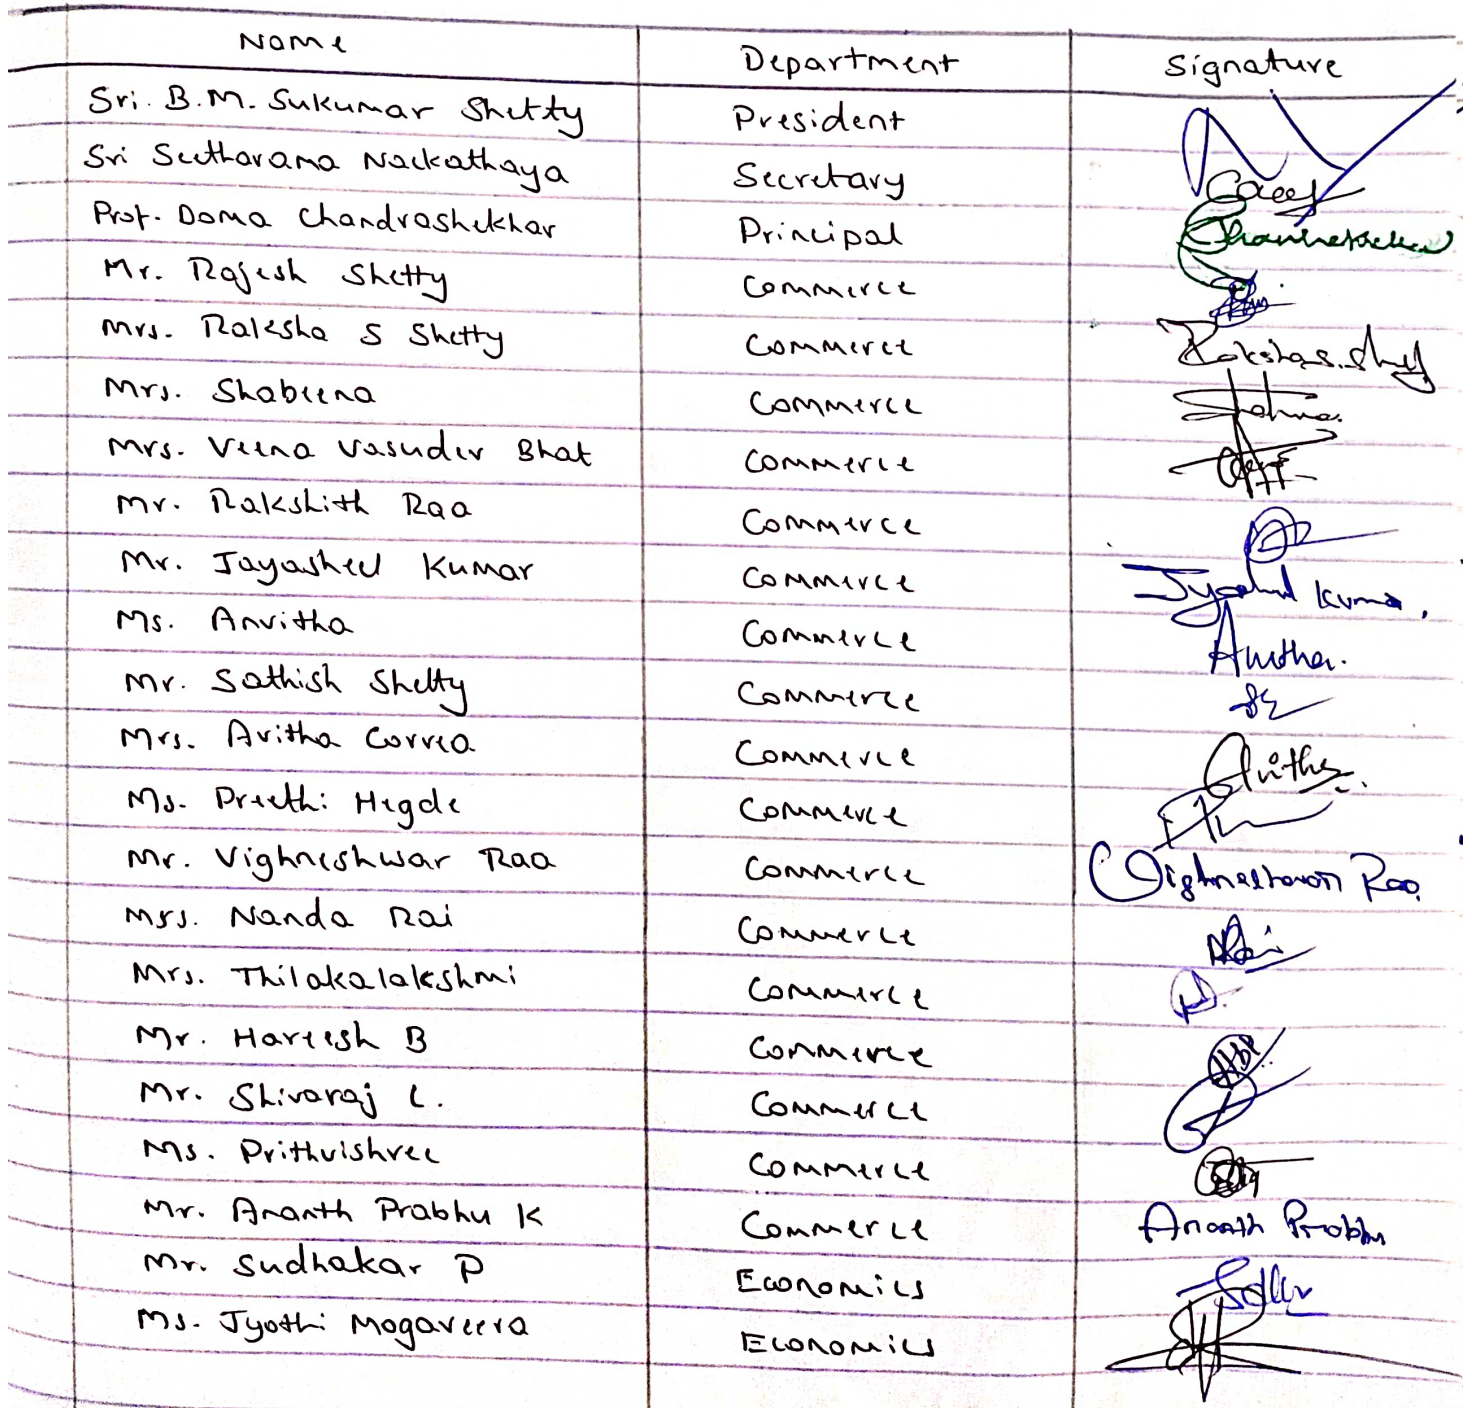 Name Department Signature
Sri. B.M. Sukumar Shetty President
Sri Seetharama Nackathaya Secretary
Prof. Doma Chandrashekhar Principal
Mr. Rajesh Shetty Commerce
Mrs. Raksha S Shetty Commerce Raksha S. Shetty
Mrs. Shabeena Commerce
Mrs. Veena Vasudev Bhat Commerce
Mr. Rakshith Rao Commerce
Mr. Jayasheel Kumar Commerce Kumar
Ms. Anvitha Commerce
Mr. Sathish Shetty Commerce
Mrs. Avitha Correa Commerce Avitha
Ms. Preethi Hegde Commerce
Mr. Vighneshwar Rao Commerce Vighneshwar Rao
Mrs. Nanda Rai Commerce
Mrs. Thilakalakshmi Commerce
Mr. Hareesh B Commerce
Mr. Shivaraj C. Commerce
Ms. Prithvishree Commerce
Mr. Ananth Prabhu K Commerce Ananth Prabhu
Mr. Sudhakar P Economics
Ms. Jyothi Mogaveera Economics